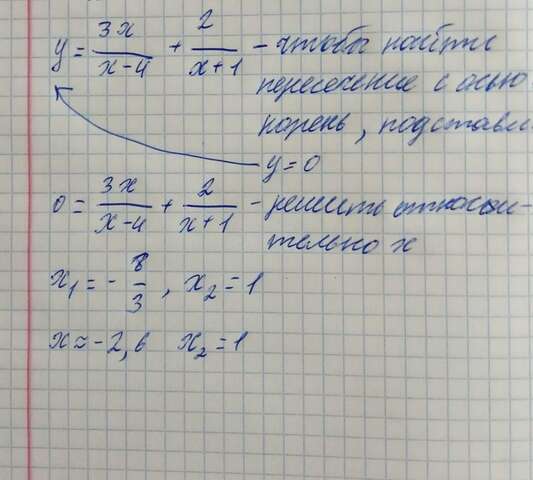 y = 3x/(x-4) + 2/(x+1) - чтобы найти
пересечение с осью
корень, подстави
y = 0
0 = 3x/(x-4) + 2/(x+1) - решить относи-
тельно x
x₁ = - 8/3 , x₂ = 1
x ≈ -2,6 x₂ = 1